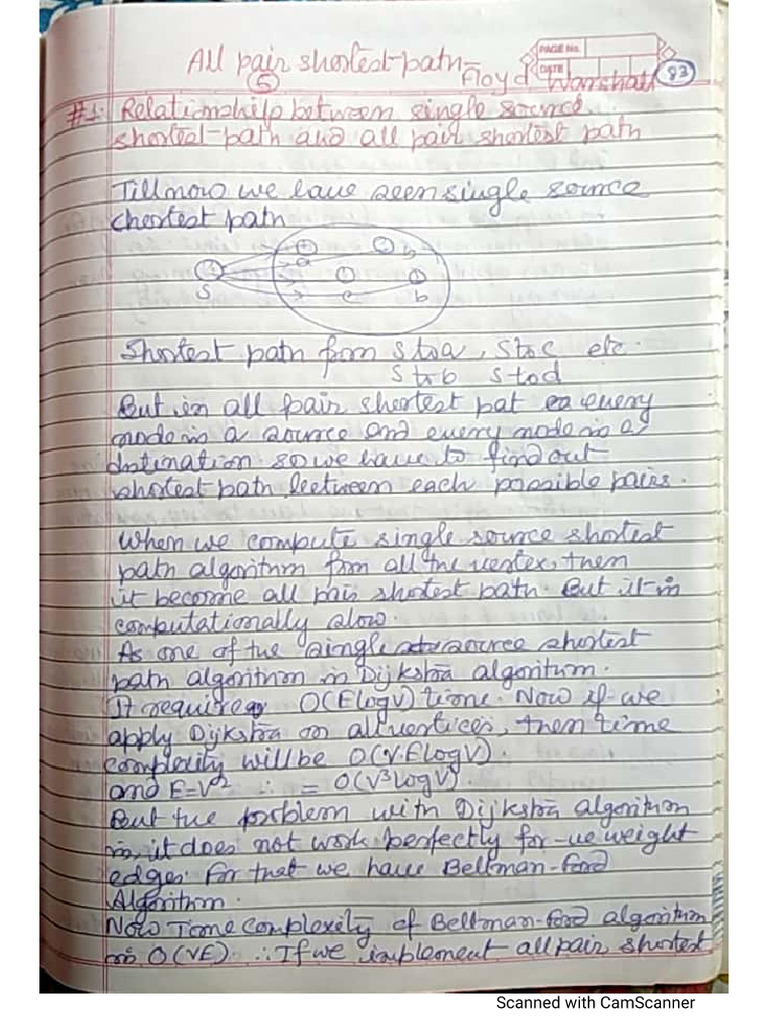 All pair shortest-path - Floyd Warshall
PAGE No.
DATE
83
5
#1. Relationship between single source
shortest-path and all pair shortest path
Till now we have seen single source
shortest path
a b
S c b
Shortest path from s to a, s to c etc.
s to b s to d
But in all pair shortest pat every
node is a source and every node is a
dstination so we have to find out
shortest path between each possible paires.
When we compute single source shortest
path algorithm from all the vertex, then
it become all pair shortest path. But it is
computationally slow.
As one of the single source shortest
path algorithm is Dijkstra algorithm.
It require O(ElogV) time. Now if we
apply Dijkstra on all vertices, then time
complexity will be O(V.ElogV).
and E=V² ∴ = O(V³logV).
But the problem with Dijkstra algorithm
is, it does not work perfectly for -ve weight
edges. For that we have Bellman-Ford
Algorithm.
Now Time complexity of Bellman-ford algorithm
is O(VE). ∴ If we implement all pair shortest
Scanned with CamScanner